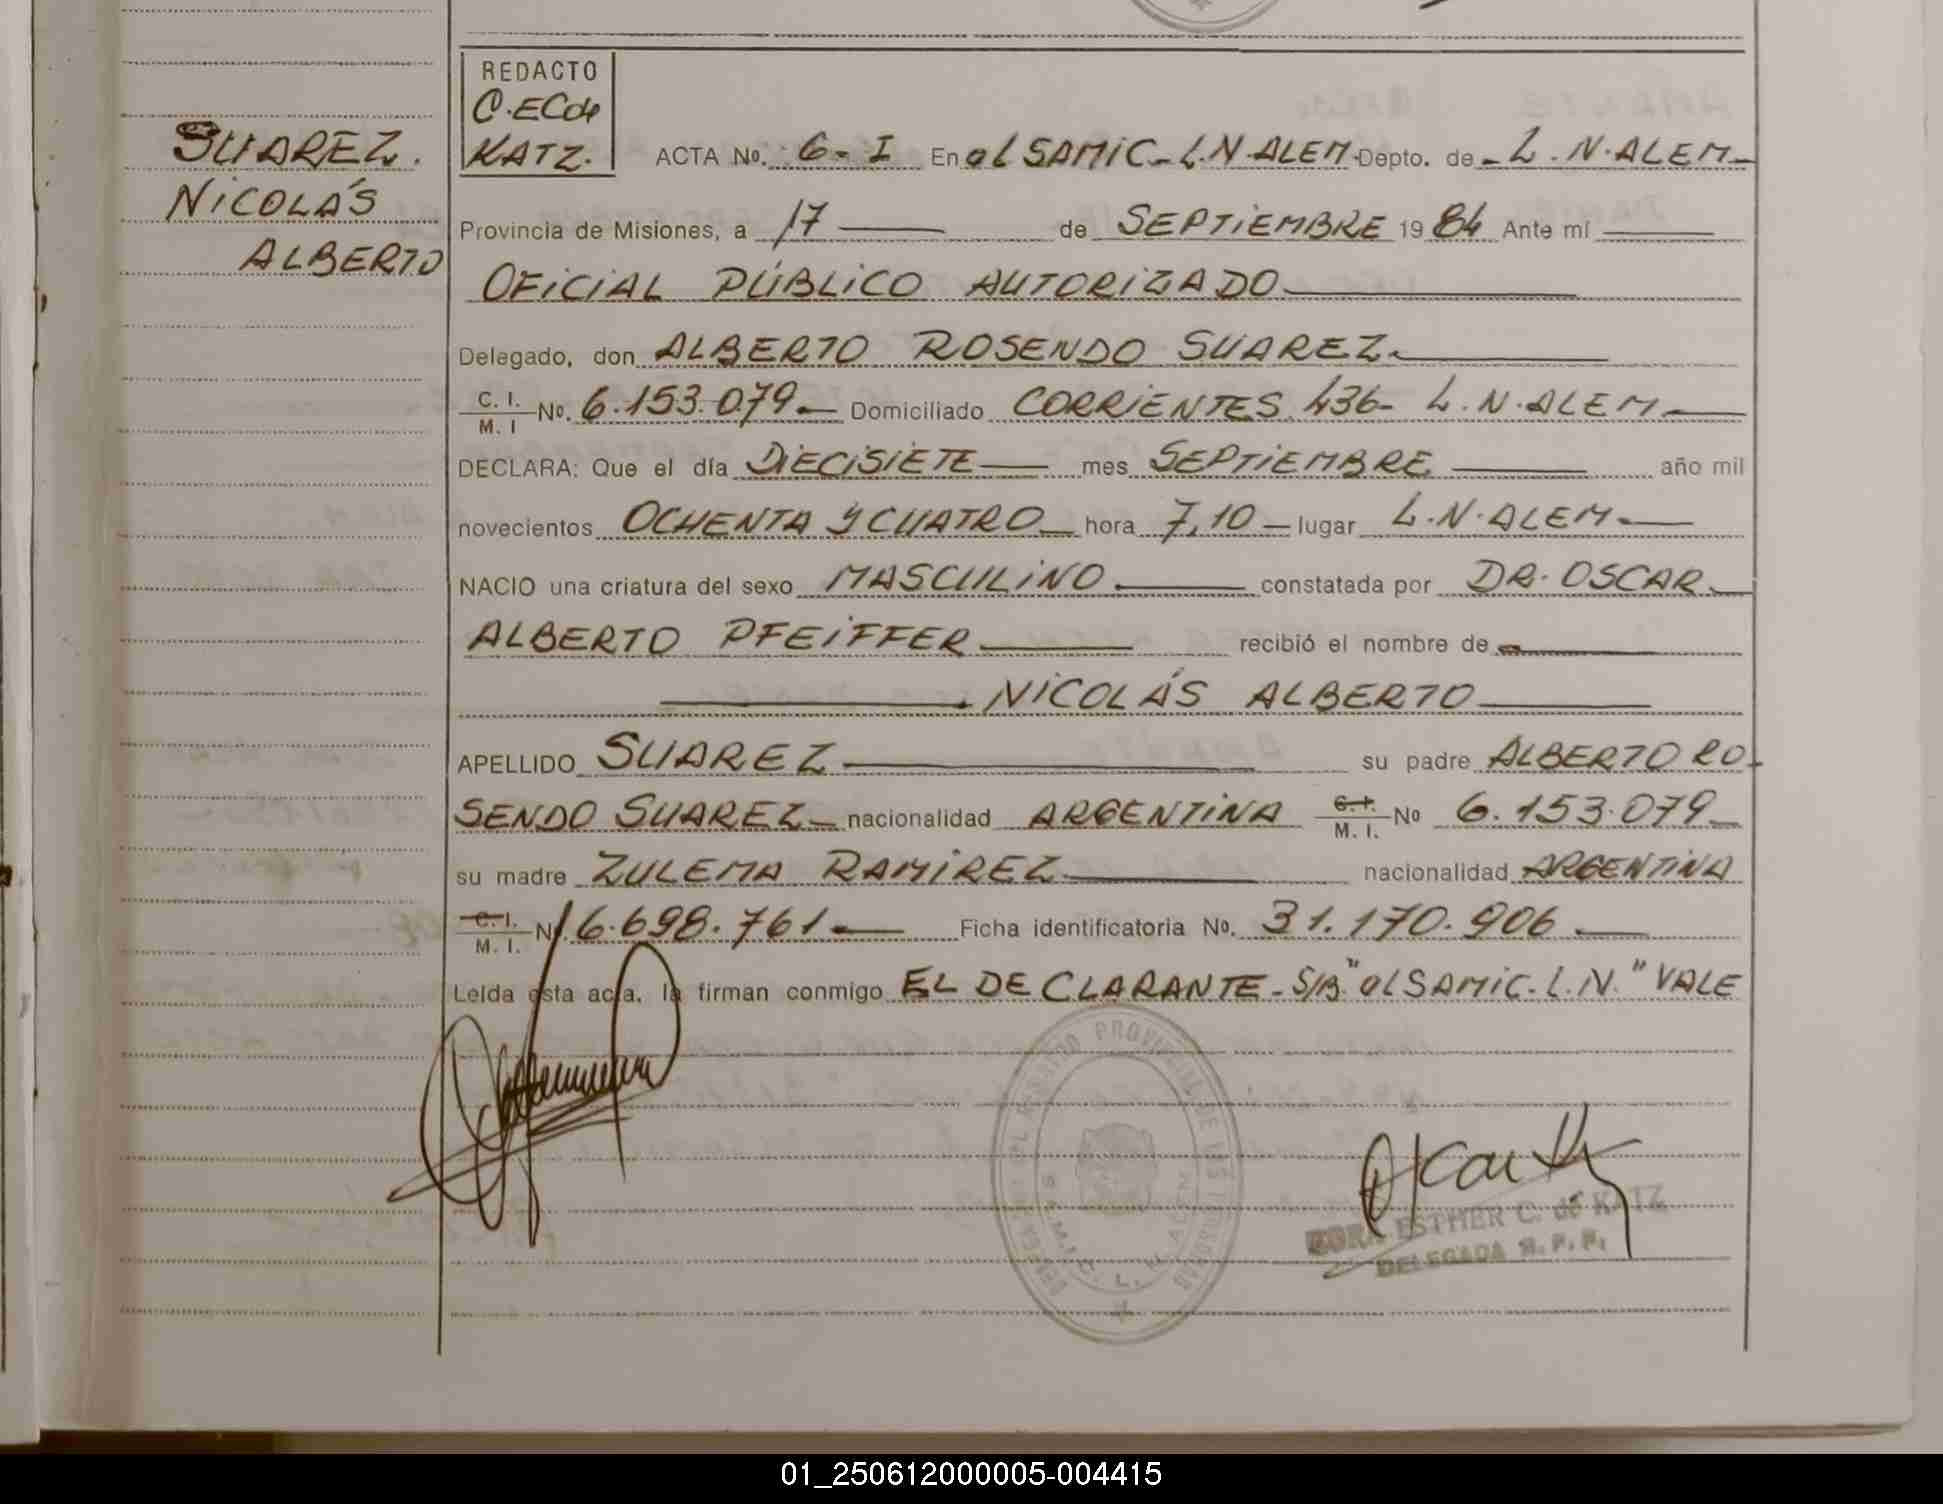 SUAREZ.
NICOLÁS
ALBERTO
REDACTO
C. EC de
KATZ.
ACTA No. 6-I En el SAMIC-L.N-ALEM. Depto. de - L.N.ALEM-
Provincia de Misiones, a 17 de SEPTIEMBRE 19 84 Ante mi
OFICIAL PÚBLICO AUTORIZADO
Delegado, don ALBERTO ROSENDO SUAREZ.
C. I. M. I No. 6.153.079 Domiciliado CORRIENTES 436- L.N.ALEM
DECLARA: Que el día DIECISIETE mes SEPTIEMBRE año mil
novecientos OCHENTA Y CUATRO hora 7,10 lugar L.N.ALEM
NACIO una criatura del sexo MASCULINO constatada por DR. OSCAR
ALBERTO PFEIFFER recibió el nombre de
NICOLÁS ALBERTO
APELLIDO SUAREZ su padre ALBERTO RO-
SENDO SUAREZ nacionalidad ARGENTINA C.I. M. I. No 6.153.079
su madre ZULEMA RAMIREZ nacionalidad ARGENTINA
C. I. M. I. N 16.698.761 Ficha identificatoria No. 31.170.906
Leída esta acta, la firman conmigo EL DECLARANTE - S/B "el SAMIC-L.N." VALE
REGISTRO PROVINCIAL DE LAS PERSONAS
L. N. ALEM
ESTHER C. de KATZ
DELEGADA R. P. P.
01_250612000005-004415